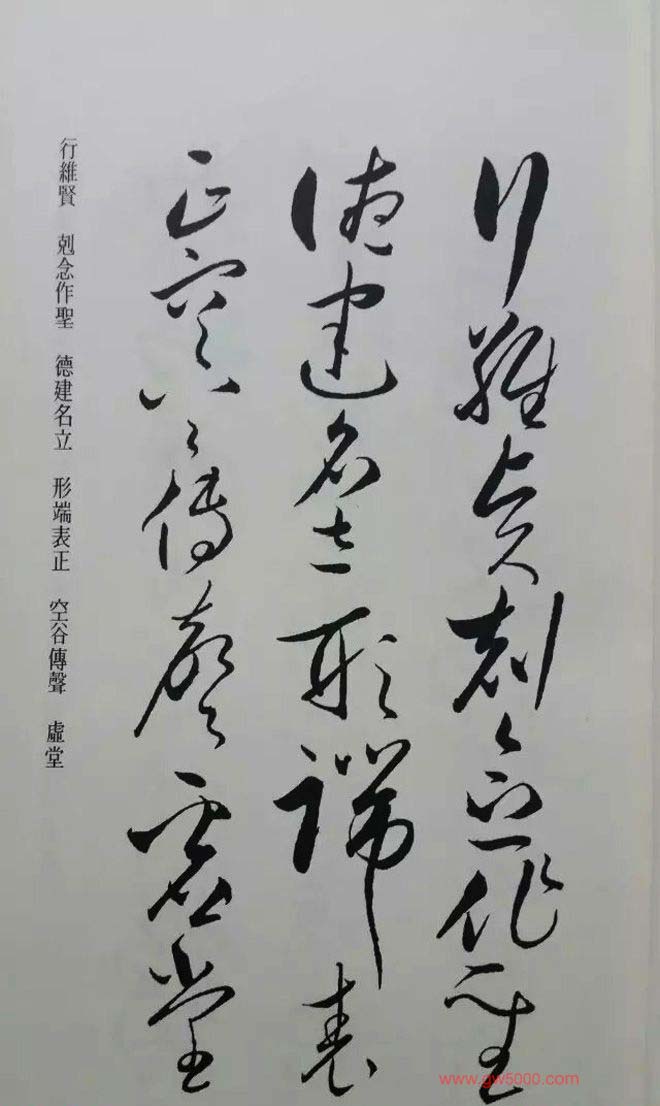 行維賢剋念作聖
德建名立形端表
正空谷傳聲虛堂
行維賢 剋念作聖 德建名立 形端表正 空谷傳聲 虛堂
www.gw5000.com